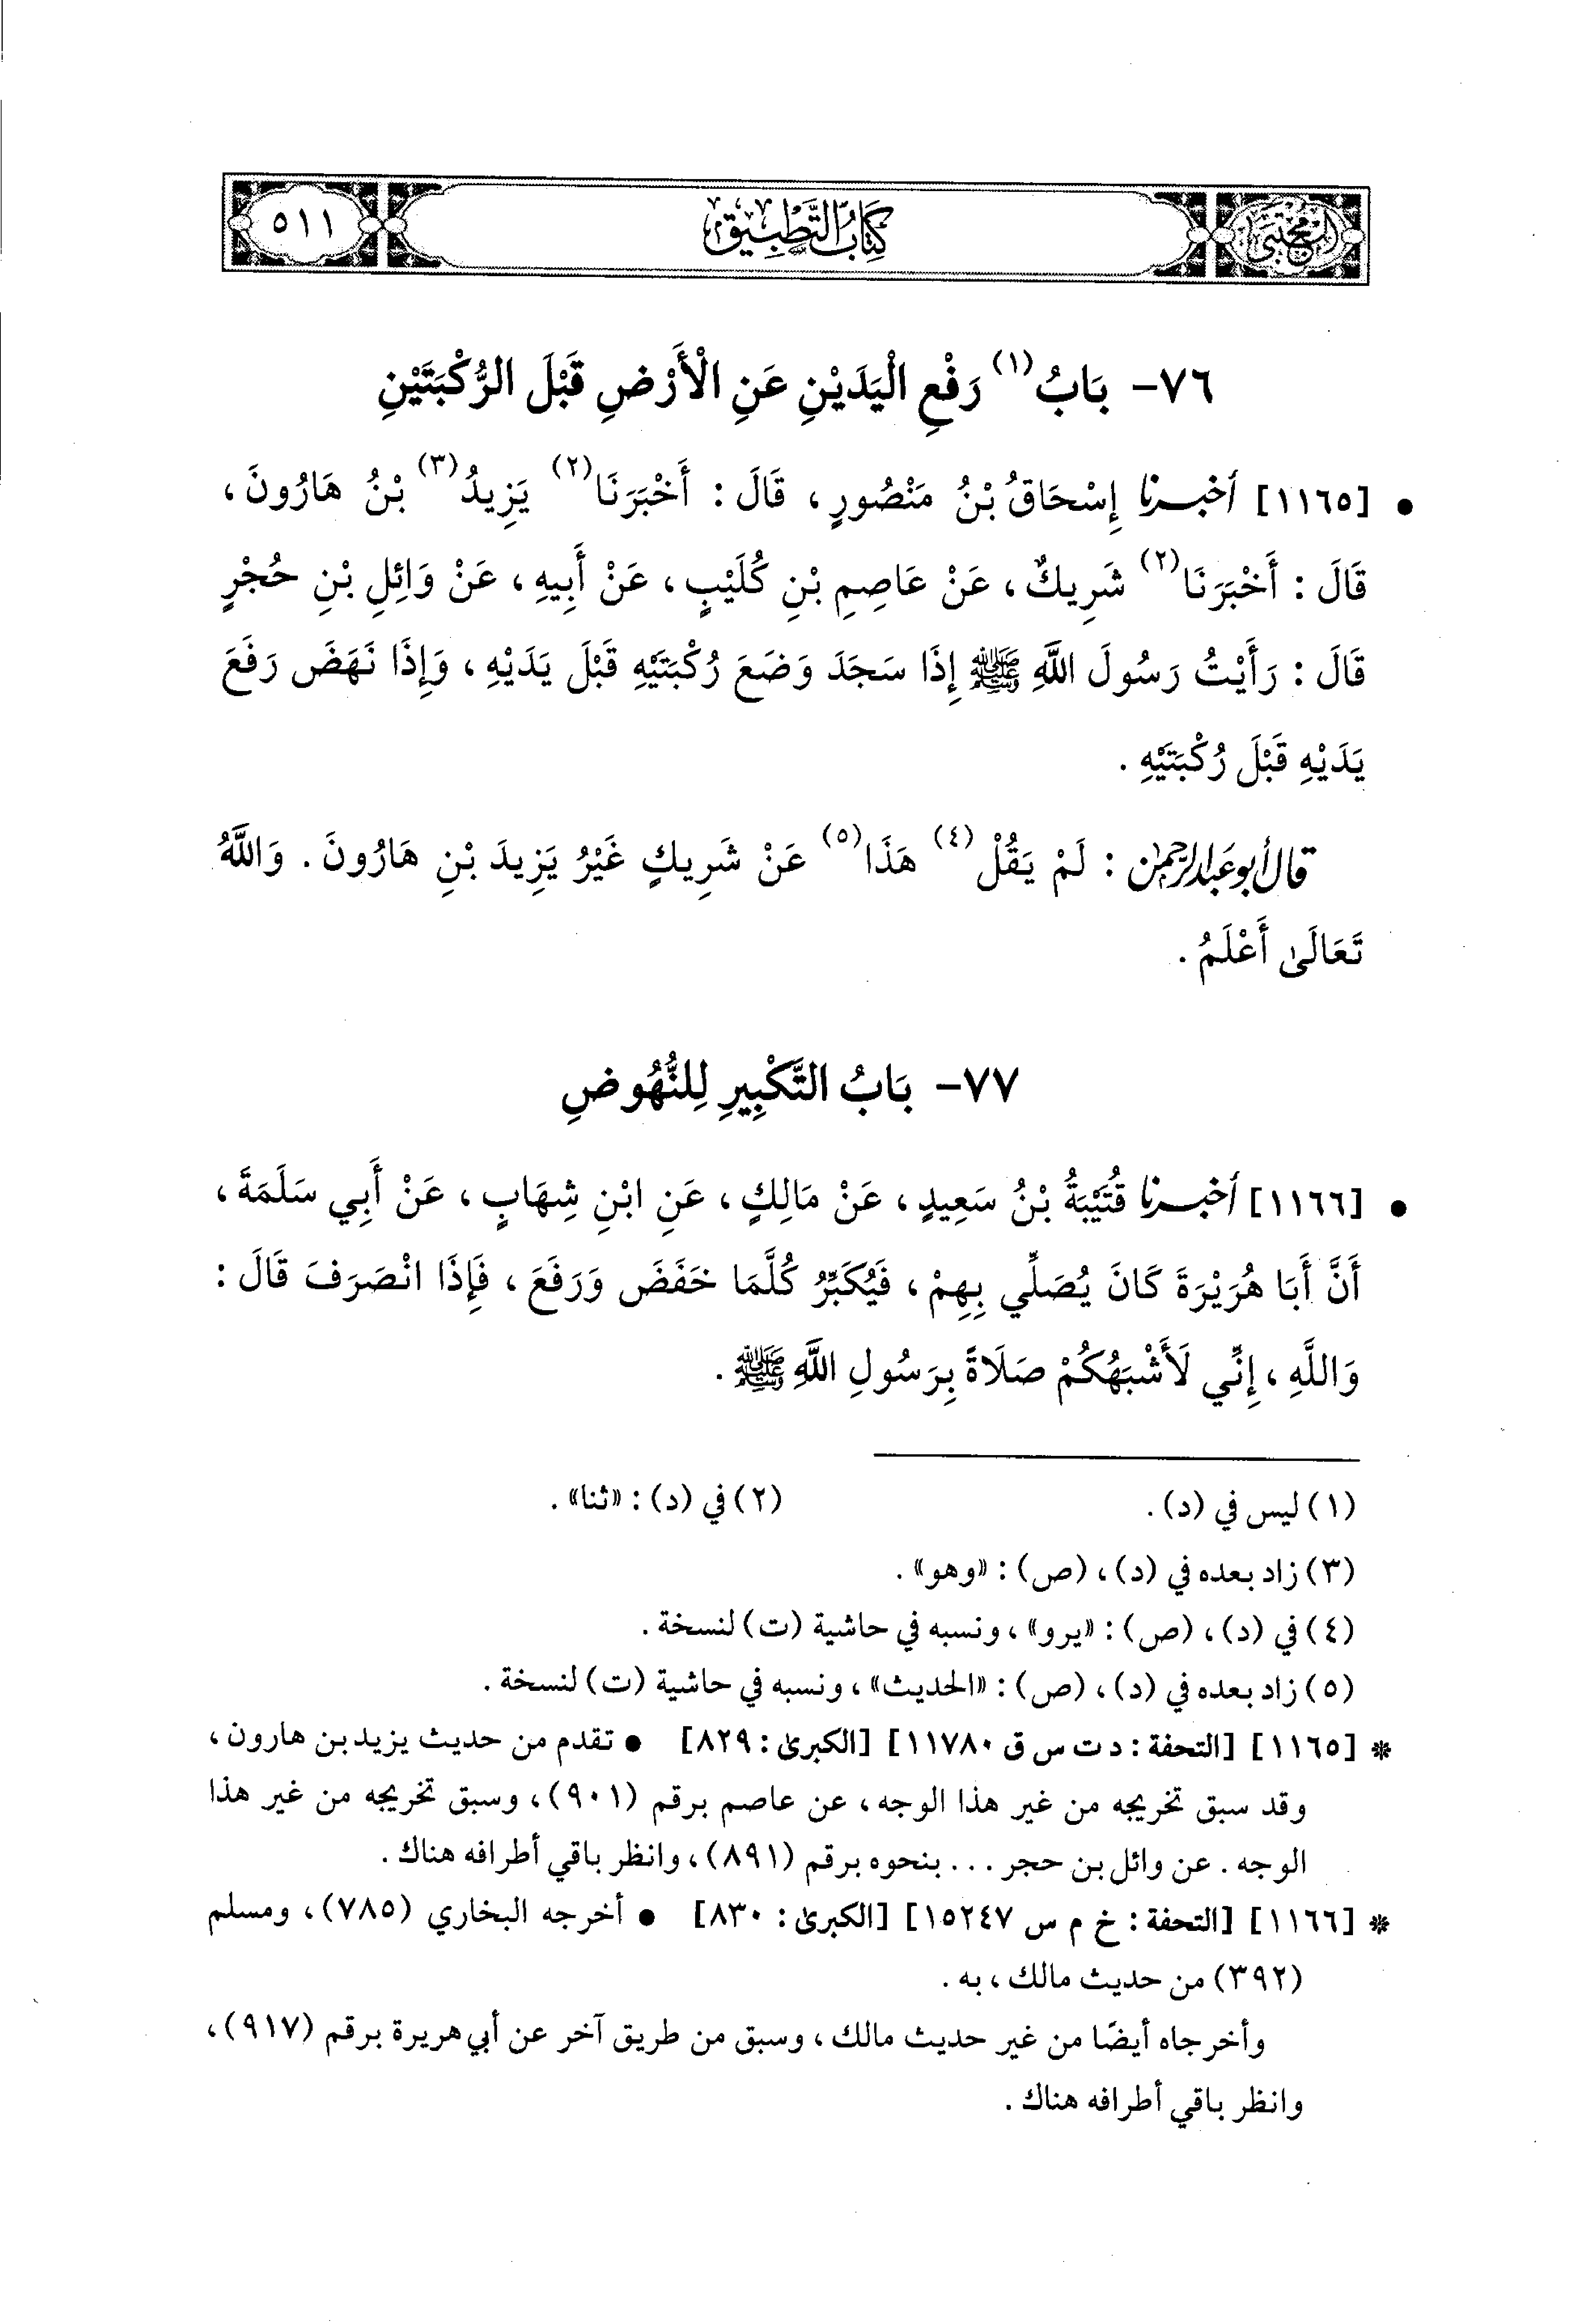 المجتبى
كتاب التطبيق
٥١١
٧٦- بَابُ (١) رَفْعِ الْيَدَيْنِ عَنِ الْأَرْضِ قَبْلَ الرُّكْبَتَيْنِ
• [١١٦٥] أخبرنا إِسْحَاقُ بْنُ مَنْصُورٍ، قَالَ: أَخْبَرَنَا (٢) يَزِيدُ (٣) بْنُ هَارُونَ،
قَالَ: أَخْبَرَنَا (٢) شَرِيكٌ، عَنْ عَاصِمِ بْنِ كُلَيْبٍ، عَنْ أَبِيهِ، عَنْ وَائِلِ بْنِ حُجْرٍ
قَالَ: رَأَيْتُ رَسُولَ اللَّهِ ﷺ إِذَا سَجَدَ وَضَعَ رُكْبَتَيْهِ قَبْلَ يَدَيْهِ، وَإِذَا نَهَضَ رَفَعَ
يَدَيْهِ قَبْلَ رُكْبَتَيْهِ.
قال أبو عبد الرحمن: لَمْ يَقُلْ (٤) هَذَا (٥) عَنْ شَرِيكٍ غَيْرُ يَزِيدَ بْنِ هَارُونَ. وَاللَّهُ
تَعَالَىٰ أَعْلَمُ.
٧٧- بَابُ التَّكْبِيرِ لِلنُّهُوضِ
• [١١٦٦] أخبرنا قُتَيْبَةُ بْنُ سَعِيدٍ، عَنْ مَالِكٍ، عَنِ ابْنِ شِهَابٍ، عَنْ أَبِي سَلَمَةَ،
أَنَّ أَبَا هُرَيْرَةَ كَانَ يُصَلِّي بِهِمْ، فَيُكَبِّرُ كُلَّمَا خَفَضَ وَرَفَعَ، فَإِذَا انْصَرَفَ قَالَ:
وَاللَّهِ، إِنِّي لَأَشْبَهُكُمْ صَلَاةً بِرَسُولِ اللَّهِ ﷺ.
(١) ليس في (د). (٢) في (د): «ثنا».
(٣) زاد بعده في (د)، (ص): «وهو».
(٤) في (د)، (ص): «يرو»، ونسبه في حاشية (ت) لنسخة.
(٥) زاد بعده في (د)، (ص): «الحديث»، ونسبه في حاشية (ت) لنسخة.
* [١١٦٥] [التحفة: د ت س ق ١١٧٨٠] [الكبرىٰ: ٨٢٩] • تقدم من حديث يزيد بن هارون،
وقد سبق تخريجه من غير هذا الوجه، عن عاصم برقم (٩٠١)، وسبق تخريجه من غير هذا
الوجه. عن وائل بن حجر ... بنحوه برقم (٨٩١)، وانظر باقي أطرافه هناك.
* [١١٦٦] [التحفة: خ م س ١٥٢٤٧] [الكبرىٰ: ٨٣٠] • أخرجه البخاري (٧٨٥)، ومسلم
(٣٩٢) من حديث مالك، به.
وأخرجاه أيضًا من غير حديث مالك، وسبق من طريق آخر عن أبي هريرة برقم (٩١٧)،
وانظر باقي أطرافه هناك.